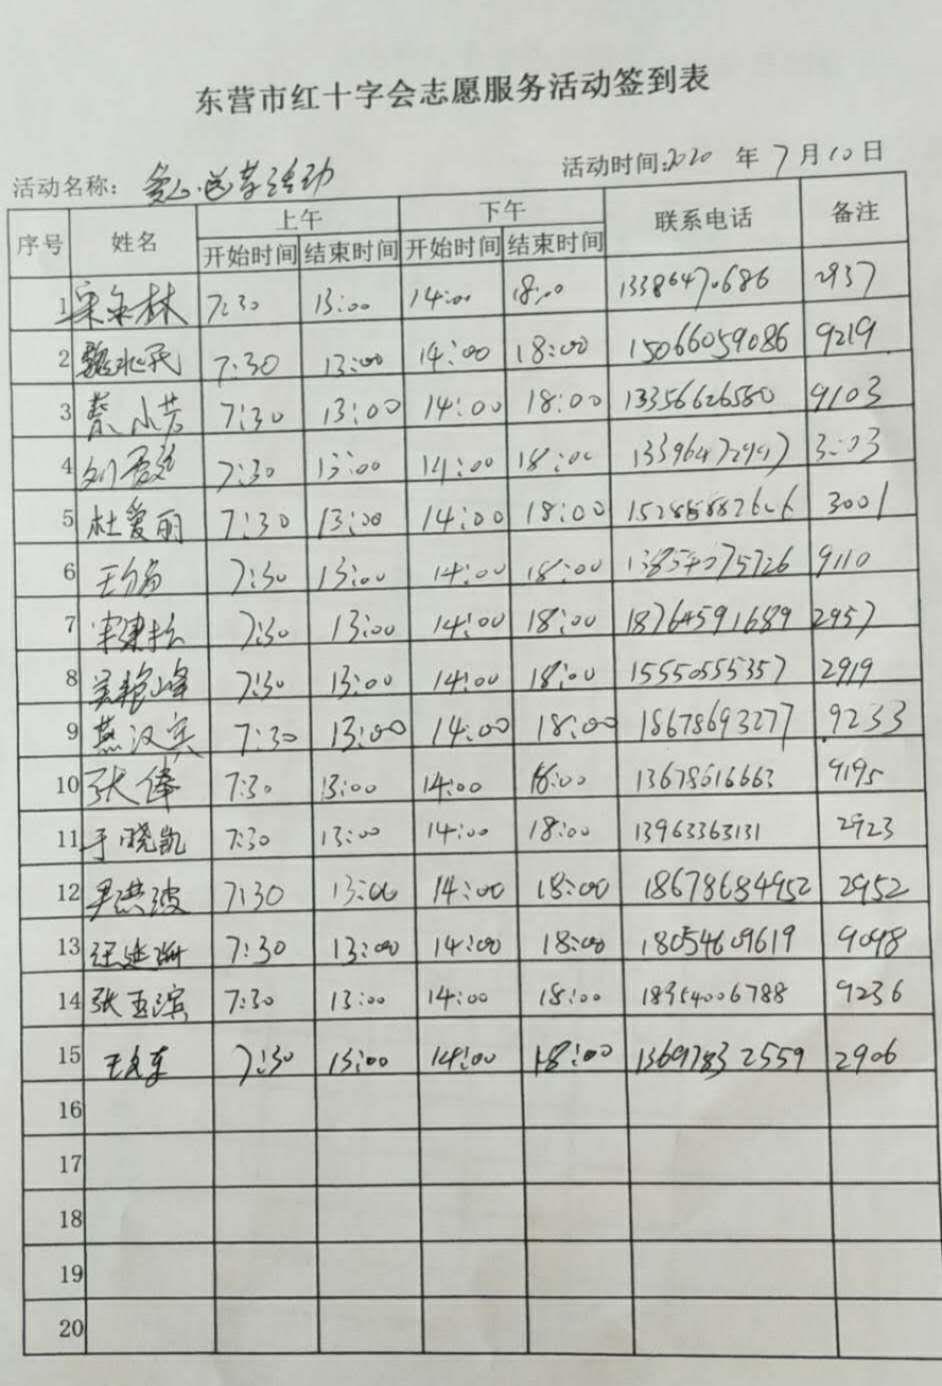 东营市红十字会志愿服务活动签到表
活动名称： 爱心送考活动 活动时间:2020 年 7 月 10 日
序号 姓名 上午 下午 联系电话 备注
开始时间 结束时间 开始时间 结束时间
1 7:30 13:00 14:00 18:00 13386470686 2937
2 7:30 13:00 14:00 18:00 15066059086 9219
3 蔡小芳 7:30 13:00 14:00 18:00 13356626580 9103
4 7:30 13:00 14:00 18:00
5 杜爱丽 7:30 13:00 14:00 18:00 3001
6 7:30 13:00 14:00 18:00 9110
7 7:30 13:00 14:00 18:00 18764591689 2957
8 吴艳峰 7:30 13:00 14:00 18:00 15550555357 2919
9 燕汉宾 7:30 13:00 14:00 18:00 18678693277 9233
10 张伟 7:30 13:00 14:00 18:00 13678616663 9195
11 于晓凯 7:30 13:00 14:00 18:00 13963363131 2923
12 尹洪波 7:30 13:00 14:00 18:00 18678684952 2952
13 7:30 13:00 14:00 18:00 18054609619 9098
14 张玉滨 7:30 13:00 14:00 18:00 18954006788 9236
15 7:30 13:00 14:00 18:00 13697832559 2906
16
17
18
19
20